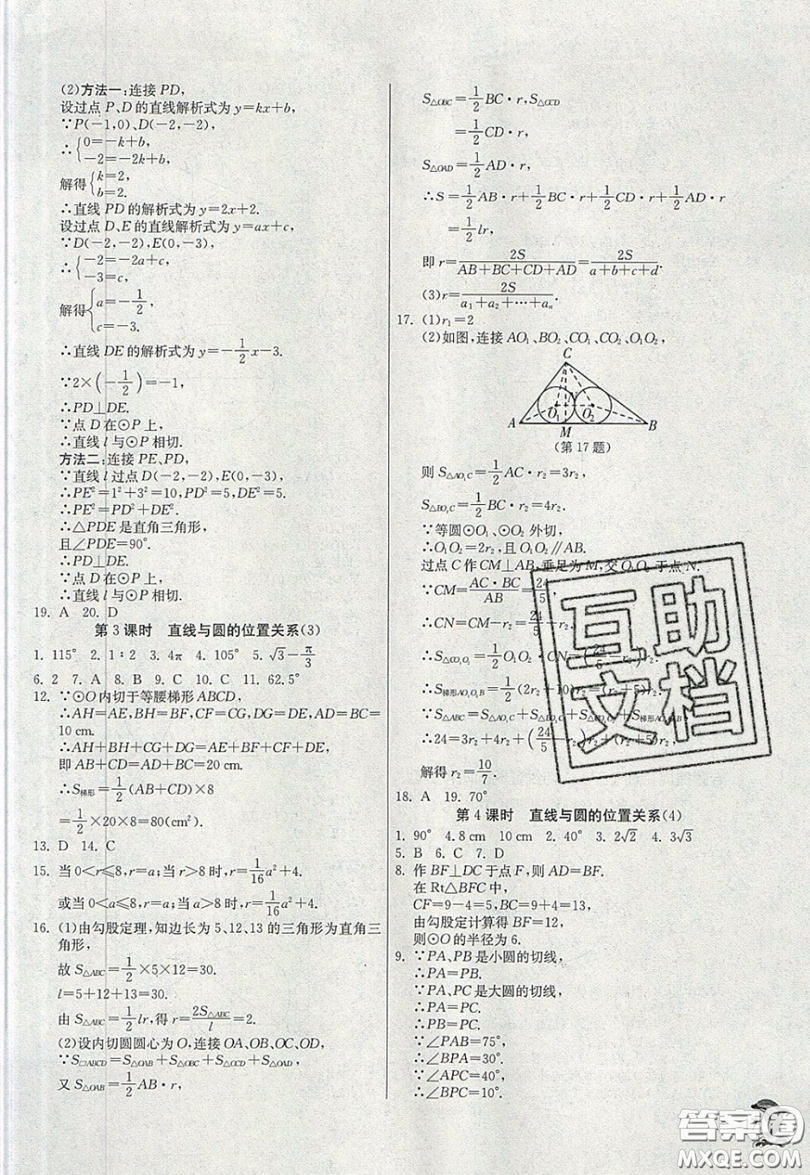 (2)方法一:连接 PD,
设过点 P、D的直线解析式为 y=kx+b,
∵P(-1,0)、D(-2,-2),
∴{0=-k+b,
-2=-2k+b,
解得{k=2,
b=2.
∴直线 PD 的解析式为 y=2x+2.
设过点 D、E 的直线解析式为 y=ax+c,
∵D(-2,-2),E(0,-3),
∴{-2=-2a+c,
-3=c,
解得{a=-1/2,
c=-3.
∴直线 DE 的解析式为 y=-1/2x-3.
∵2×(-1/2)=-1,
∴PD⊥DE.
∵点 D 在⊙P 上,
∴直线 l 与⊙P 相切.
方法二:连接 PE、PD,
∵直线 l 过点 D(-2,-2)、E(0,-3),
∴PE²=1²+3²=10,PD²=5,DE²=5.
∴PE²=PD²+DE².
∴△PDE 是直角三角形,
且∠PDE=90°.
∴PD⊥DE.
∵点 D 在⊙P 上,
∴直线 l 与⊙P 相切.
19. A 20. D
第 3 课时 直线与圆的位置关系(3)
1. 115° 2. 1:2 3. 4π 4. 105° 5. √3-π/3
6. 2 7. A 8. B 9. C 10. C 11. 62.5°
12. ∵⊙O 内切于等腰梯形 ABCD,
∴AH=AE,BH=BF,CF=CG,DG=DE=
10 cm.
∴AH+BH+CG+DG=AE+BF+CF+DE,
即 AB+CD=AD+BC=20 cm.
∴S梯形=1/2(AD+BC)×8
=1/2×20×8=80(cm²).
13. D 14. C
15. 当 0<r≤8,r=a;当 r>8 时,r=1/16a²+4.
或当 0<a≤8,r=a;当 a>8 时,r=1/16a²+4.
16. (1)由勾股定理,知边长为 5、12、13 的三角形为直角三
角形,
故 S△ABC=1/2×5×12=30.
l=5+12+13=30.
由 S△ABC=1/2lr,得 r=2S△ABC/l=2.
(2)设内切圆圆心为 O,连接 OA、OB、OC、OD,
∵S□ABCD=S△OAB+S△OBC+S△OCD+S△OAD,
又 S△OAB=1/2AB·r,
S△OBC=1/2BC·r,S△OCD
=1/2CD·r,
S△OAD=1/2AD·r,
∴S=1/2AB·r+1/2BC·r+1/2CD·r+1/2AD·r
=1/2lr,
即 r=2S/(AB+BC+CD+AD)=2S/(a+b+c+d).
(3)r=2S/(a₁+a₂+…+aₙ)
17. (1)r₁=2
(2)如图,连接 AO₁、BO₂、CO₁、CO₂、O₁O₂,
C
N
A
O₁
O₂
M
B
(第 17 题)
则 S△AO₁C=1/2AC·r₂=3r₂,
S△BO₂C=1/2BC·r₂=4r₂.
∵等圆⊙O₁、⊙O₂ 外切,
∴O₁O₂=2r₂,且 O₁O₂∥AB.
过点 C 作 CM⊥AB,垂足为 M,交 O₁O₂ 于点 N.
∵CM=AC·BC/AB=24/5,
∴CN=CM-r₂=24/5-r₂.
∴S△CO₁O₂=1/2O₁O₂·CN=(24/5-r₂)r₂,
∴S梯形AO₁O₂B=1/2(2r₂+10)r₂=(r₂+5)r₂.
∵S△ABC=S△AO₁C+S△BO₂C+S△CO₁O₂+S梯形AO₁O₂B,
∴24=3r₂+4r₂+(24/5-r₂)r₂+(r₂+5)r₂.
解得 r₂=10/7.
18. A 19. 70°
第 4 课时 直线与圆的位置关系(4)
1. 90° 4.8 cm 10 cm 2. 40° 3. 2√2 4. 3√3
5. B 6. C 7. D
8. 作 BF⊥DC 于点 F,则 AD=BF.
在 Rt△BFC 中,
CF=9-4=5,BC=9+4=13,
由勾股定计算得 BF=12,
则⊙O 的半径为 6.
9. ∵PA、PB 是小圆的切线,
∴PA=PB.
∵PA、PC 是大圆的切线,
∴PA=PC.
∴PB=PC.
∵∠PAB=75°,
∴∠BPA=30°.
∵∠APC=40°,
∴∠BPC=10°.
互助
文档
答案卷
MXQE.COM